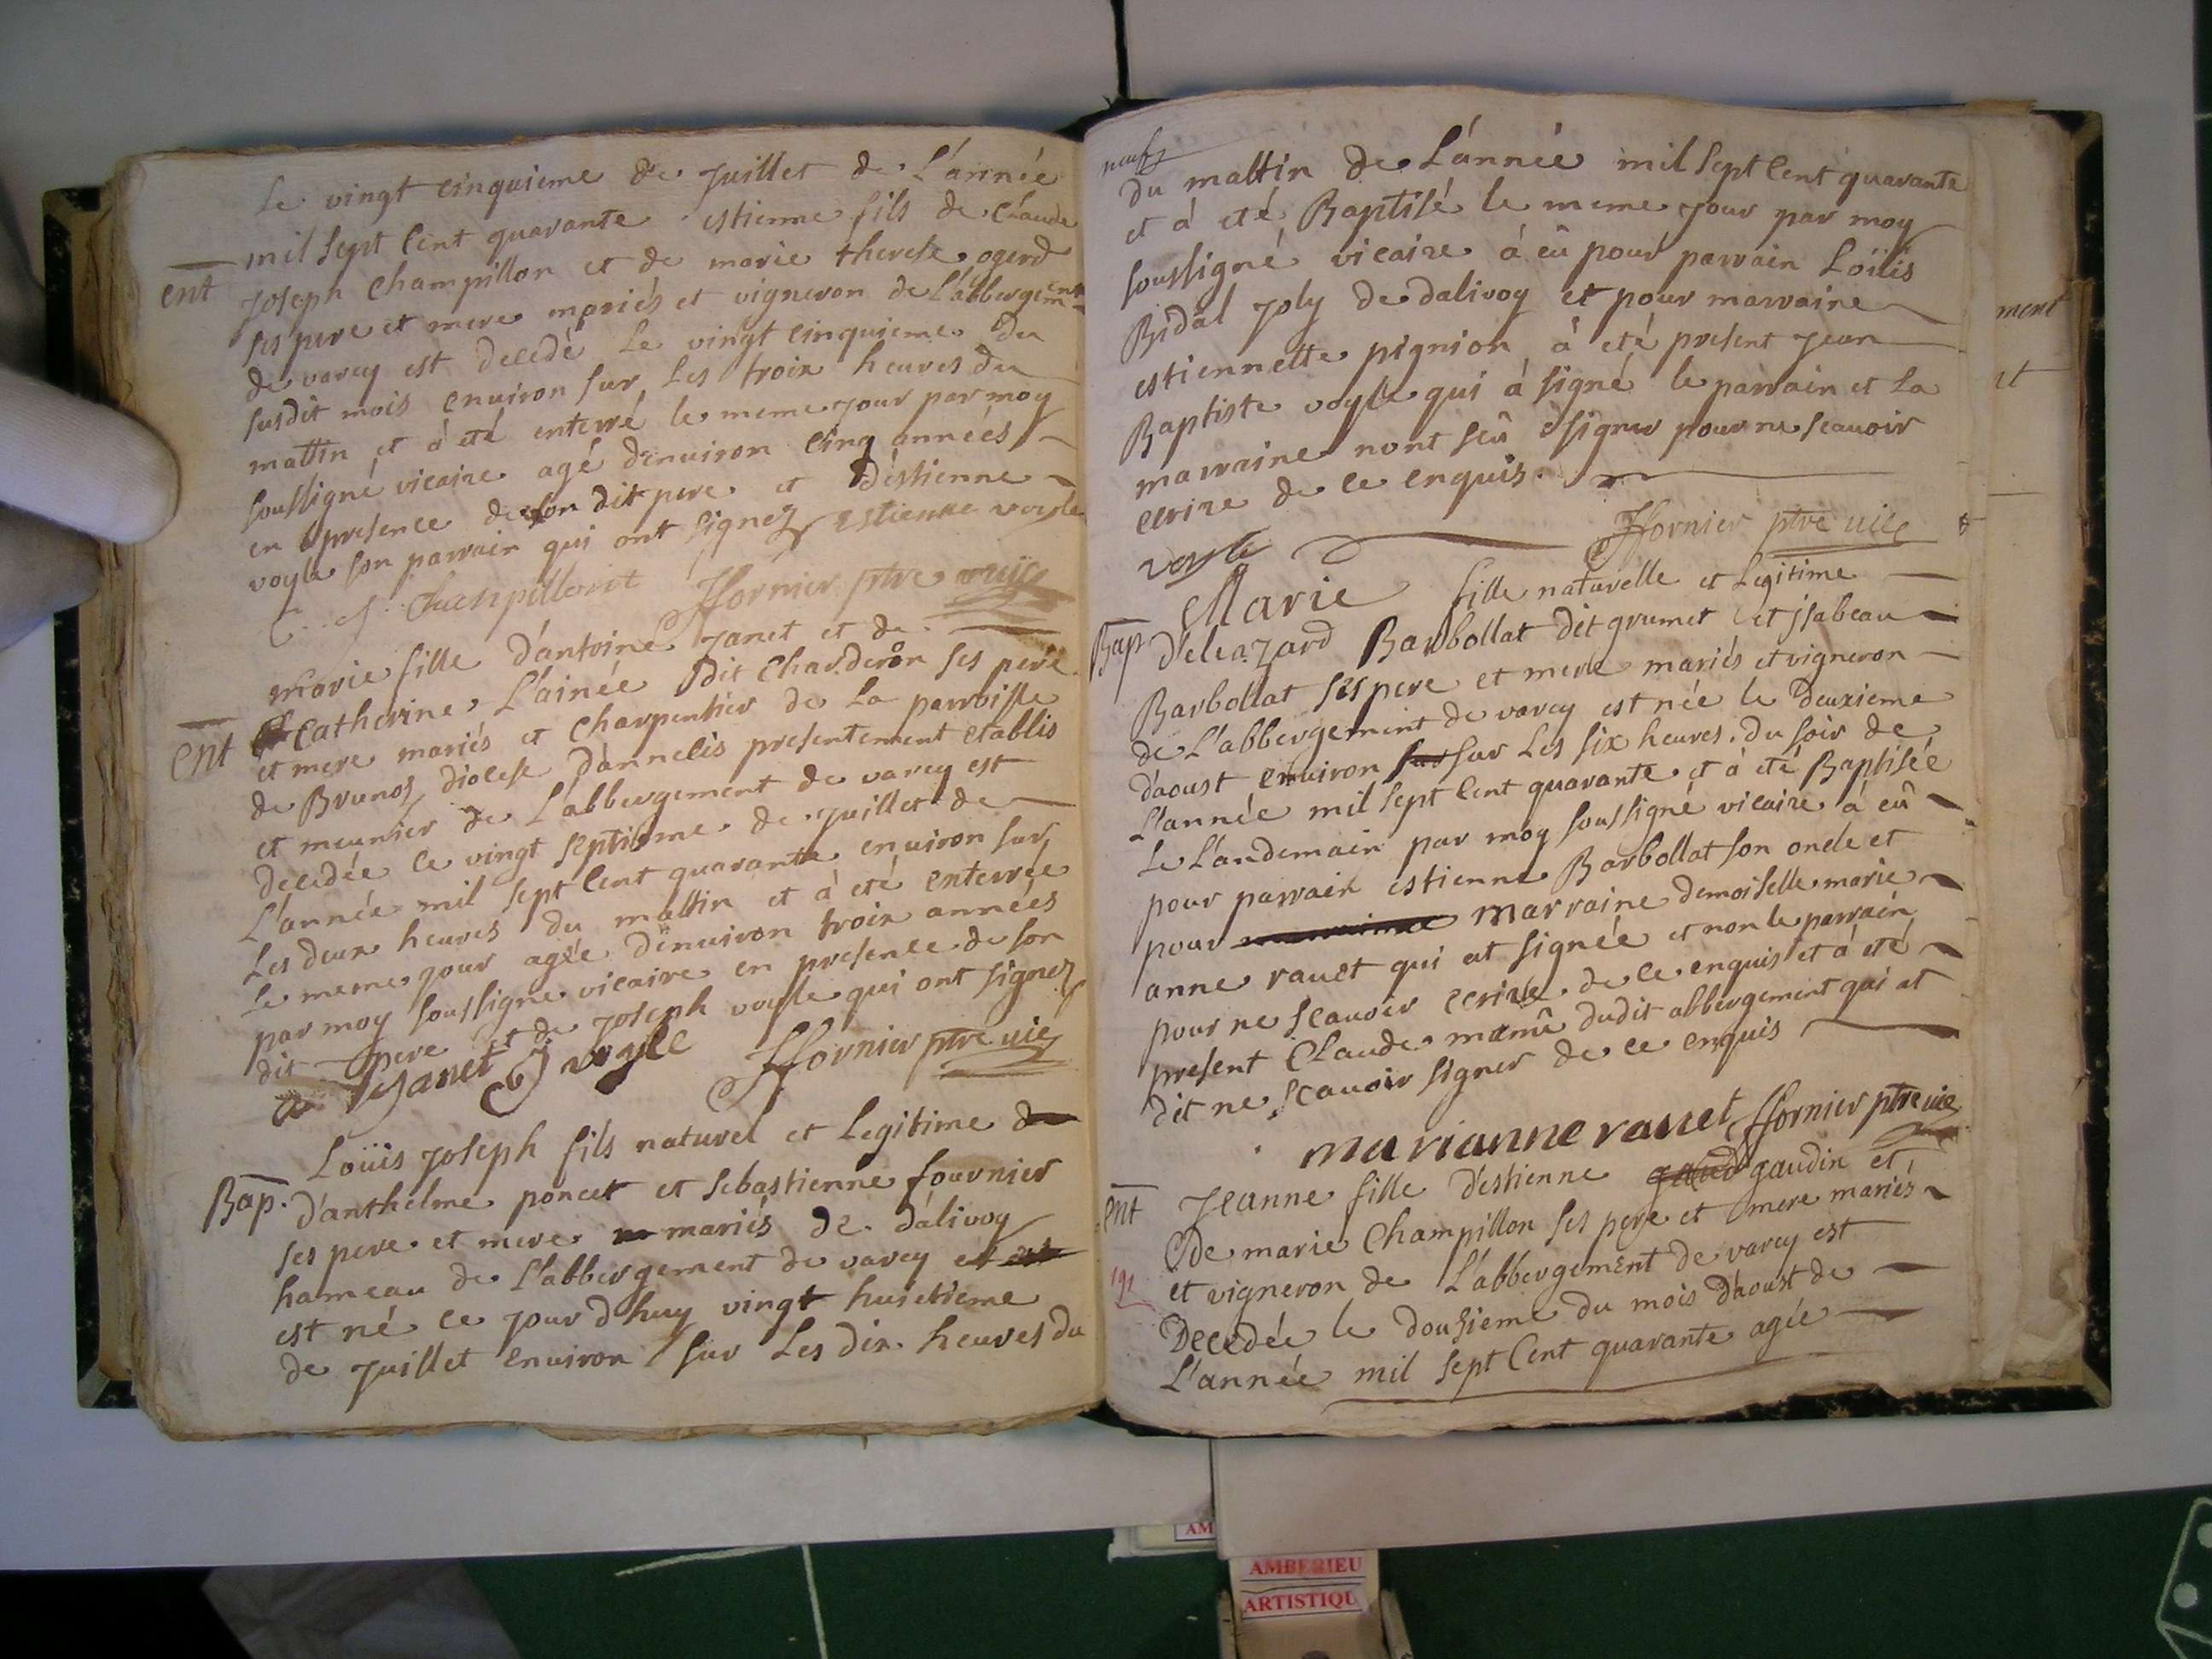 Le vingt cinquieme de Juillet de L'année
mil sept Cent quarante estienne fils de Claude
ent
Joseph Champillon et de marie therese ogerd
ses pere et mere mariés et vigneron de L'abbergement
de varey est decedé Le vingt cinquieme du
susdit mois environ sur Les troix heures du
mattin et à eté enterré le meme jour par moy
soussigné vicaire agé d'environ cinq années
en presence de son dit pere et d'estienne
voyle son parrain qui ont signez Estienne voyle
C. J. Champillont ffornier ptre vic
marie fille d'antoine Janet et de
Catherine L'ainée dit Charderon ses pere
ent
et mere mariés et Charpentier de La parroisse
de Brunos, diocese d'annecis presentement etablis
et meunier de L'abbergement de varey est
decedée le vingt septieme de Juillet de
L'année mil sept Cent quarante environ sur
Les deux heures du mattin et à eté enterrée
le meme jour agée d'environ troix années
par moy soussigné vicaire en presence de son
dit pere et de Joseph voyle qui ont signez
a Janet J voyle ffornier ptre vic
Loüis Joseph fils naturel et Legitime
Bap. d'anthelme poncet et sebastienne fournier
ses pere et mere mariés de d'alivoy
hameau de L'abbergement de varey et
est né ce jour d'huy vingt huictieme
de Juillet environ sur Les dix heures du
neufz
du mattin de L'année mil sept Cent quarante
et à eté Baptisé le meme jour par moy
soussigné vicaire à eû pour parrain Loüis
Bidal Joly de dalivoy et pour marraine
estiennette pignion à eté present Jean
Baptiste voyle qui à signé le parrain et La
marraine nont sçû signer pour ne scauoir
ecrire de ce enquis.
voyle ffornier ptre vic
Marie fille naturelle et Legitime
Bap. d'eleazard Barbollat dit grumet et jsabeau
Barbollat ses pere et mere mariés et vigneron
de L'abbergement de varey est née le deuxieme
d'aoust environ sur sur Les six heures du soir de
L'année mil sept Cent quarante et à eté Baptisée
le L'andemain par moy soussigné vicaire à eû
pour parrain estienne Barbollat son oncle et
pour marraine demoiselle marie
anne rauet qui at signée et non le parrain
pour ne scauoir ecrire de ce enquis et à eté
present Claude dudit abbergement qui at
dit ne scauoir signer de ce enquis
marianne rauet ffornier ptre vic
ent Jeanne fille d'estienne gaud gaudin et
de marie Champillon ses pere et mere mariés
et vigneron de L'abbergement de varey est
Decedée le douzieme du mois d'aoust de
L'année mil sept Cent quarante agée
ment
et
AM
AMBERIEU
ARTISTIQU